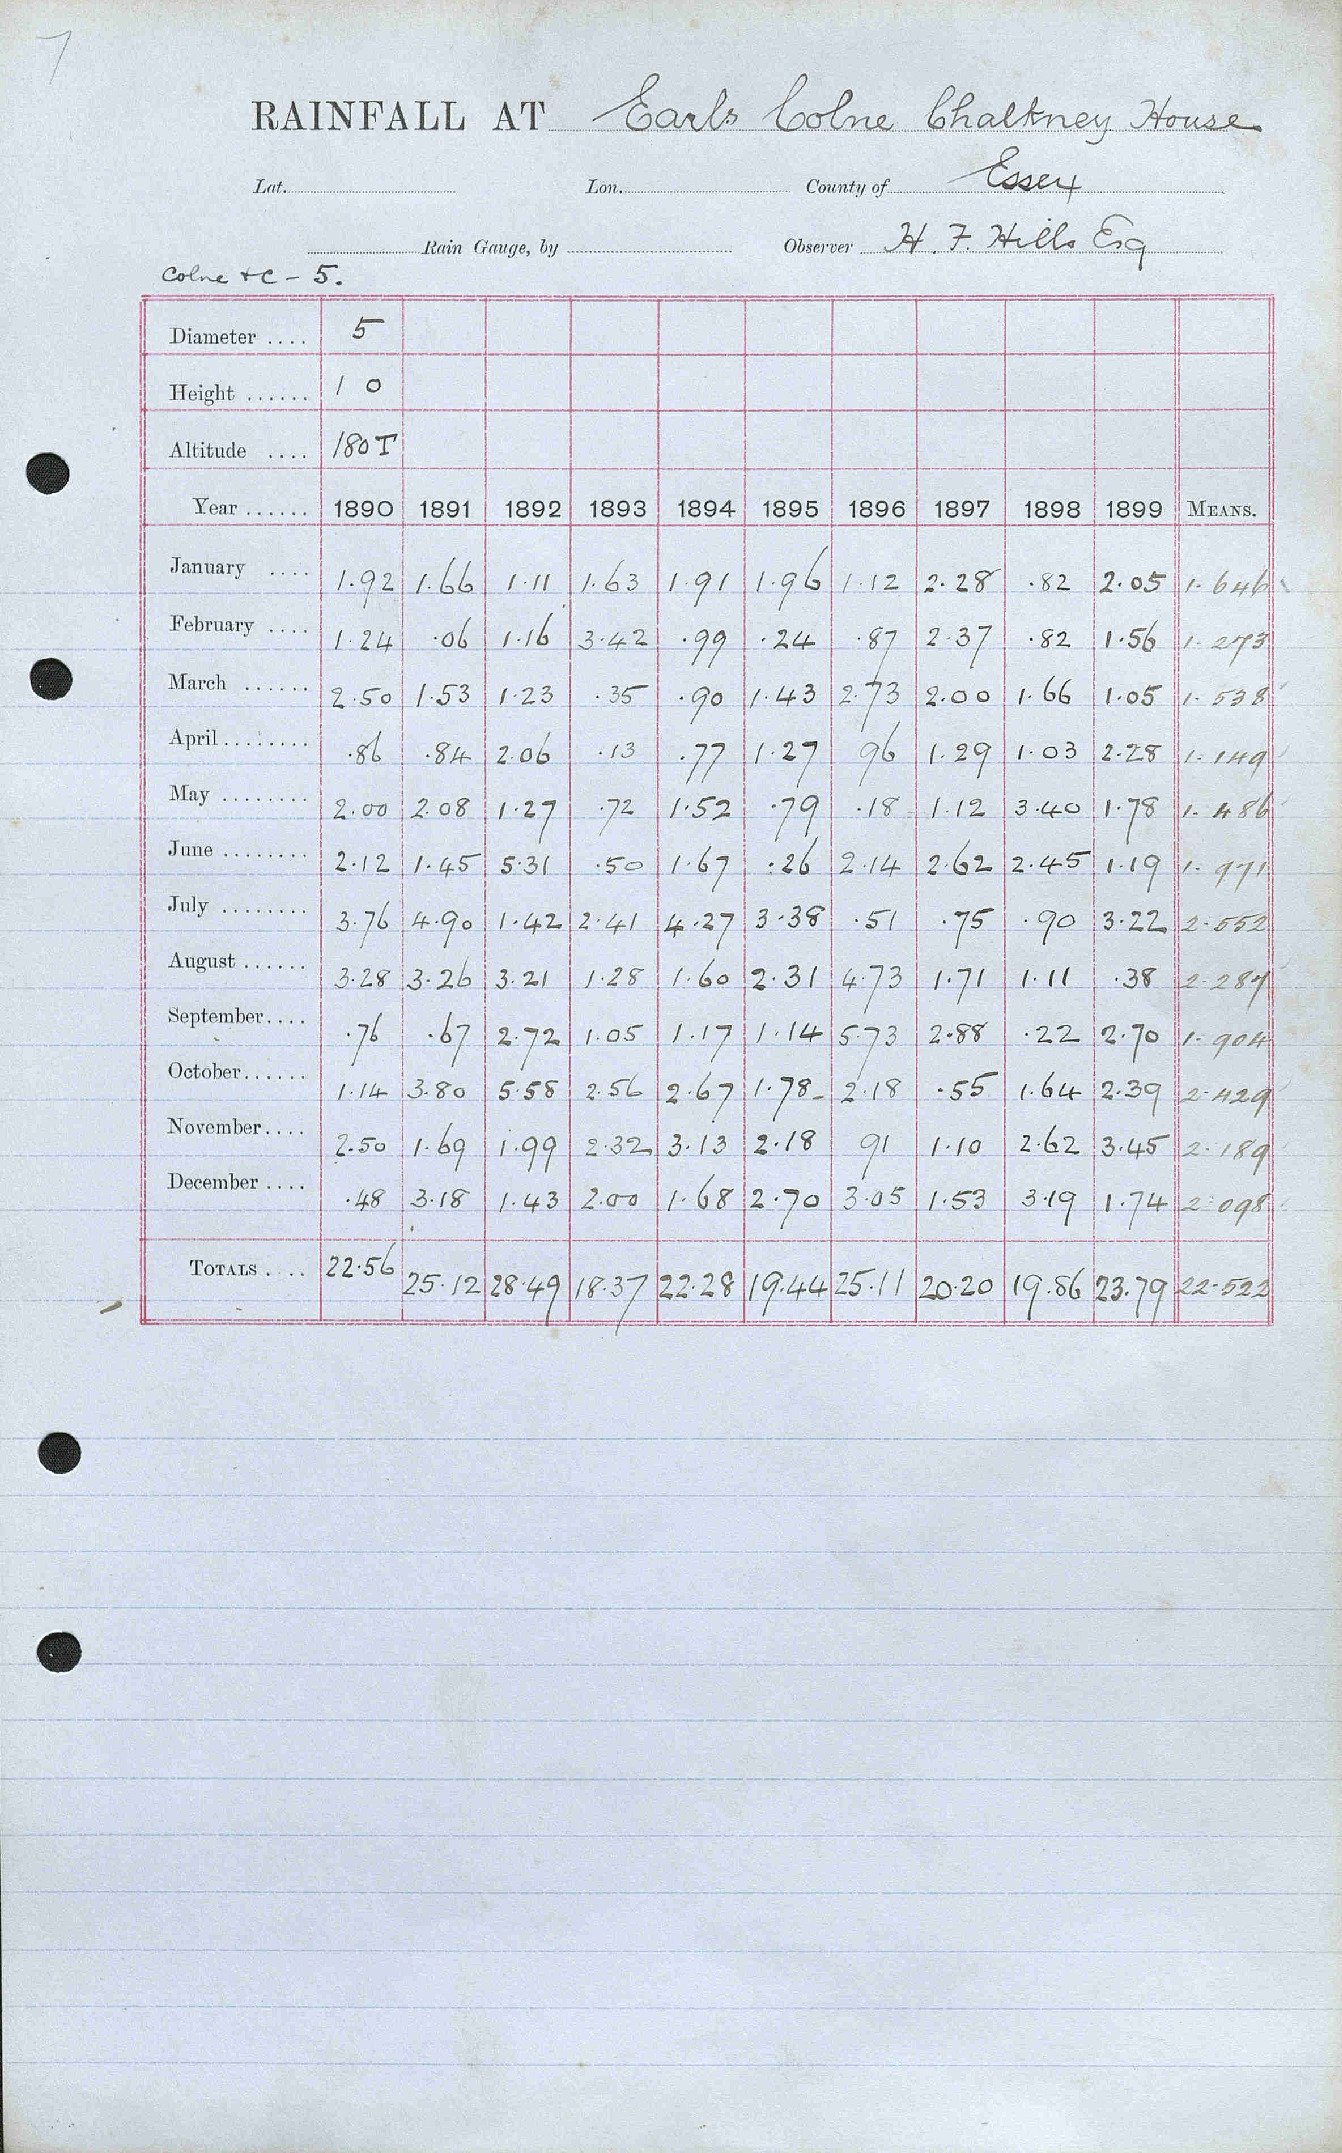 7
RAINFALL AT Earls Colne Chalkney House
Lat. Lon. County of Essex
Rain Gauge, by Observer H. F. Hills Esq
Colne & C - 5.
Diameter .... 5
Height ...... 1 0
Altitude .... 180 T
Year ...... 1890 1891 1892 1893 1894 1895 1896 1897 1898 1899 MEANS.
January .... 1.92 1.66 1.11 1.63 1.91 1.96 1.12 2.28 .82 2.05 1.646
February .... 1.24 .06 1.16 3.42 .99 .24 .87 2.37 .82 1.56 1.273
March ...... 2.50 1.53 1.23 .35 .90 1.43 2.73 2.00 1.66 1.05 1.538
April ........ .86 .84 2.06 .13 .77 1.27 96 1.29 1.03 2.28 1.149
May ........ 2.00 2.08 1.27 .72 1.52 .79 .18 1.12 3.40 1.78 1.486
June ........ 2.12 1.45 5.31 .50 1.67 .26 2.14 2.62 2.45 1.19 1.971
July ........ 3.76 4.90 1.42 2.41 4.27 3.38 .51 .75 .90 3.22 2.552
August ...... 3.28 3.26 3.21 1.28 1.60 2.31 4.73 1.71 1.11 .38 2.287
September.... .76 .67 2.72 1.05 1.17 1.14 5.73 2.88 .22 2.70 1.904
October...... 1.14 3.80 5.58 2.56 2.67 1.78 2.18 .55 1.64 2.39 2.429
November.... 2.50 1.69 1.99 2.32 3.13 2.18 91 1.10 2.62 3.45 2.189
December .... .48 3.18 1.43 2.00 1.68 2.70 3.05 1.53 3.19 1.74 2.098
TOTALS .... 22.56 25.12 28.49 18.37 22.28 19.44 25.11 20.20 19.86 23.79 22.522